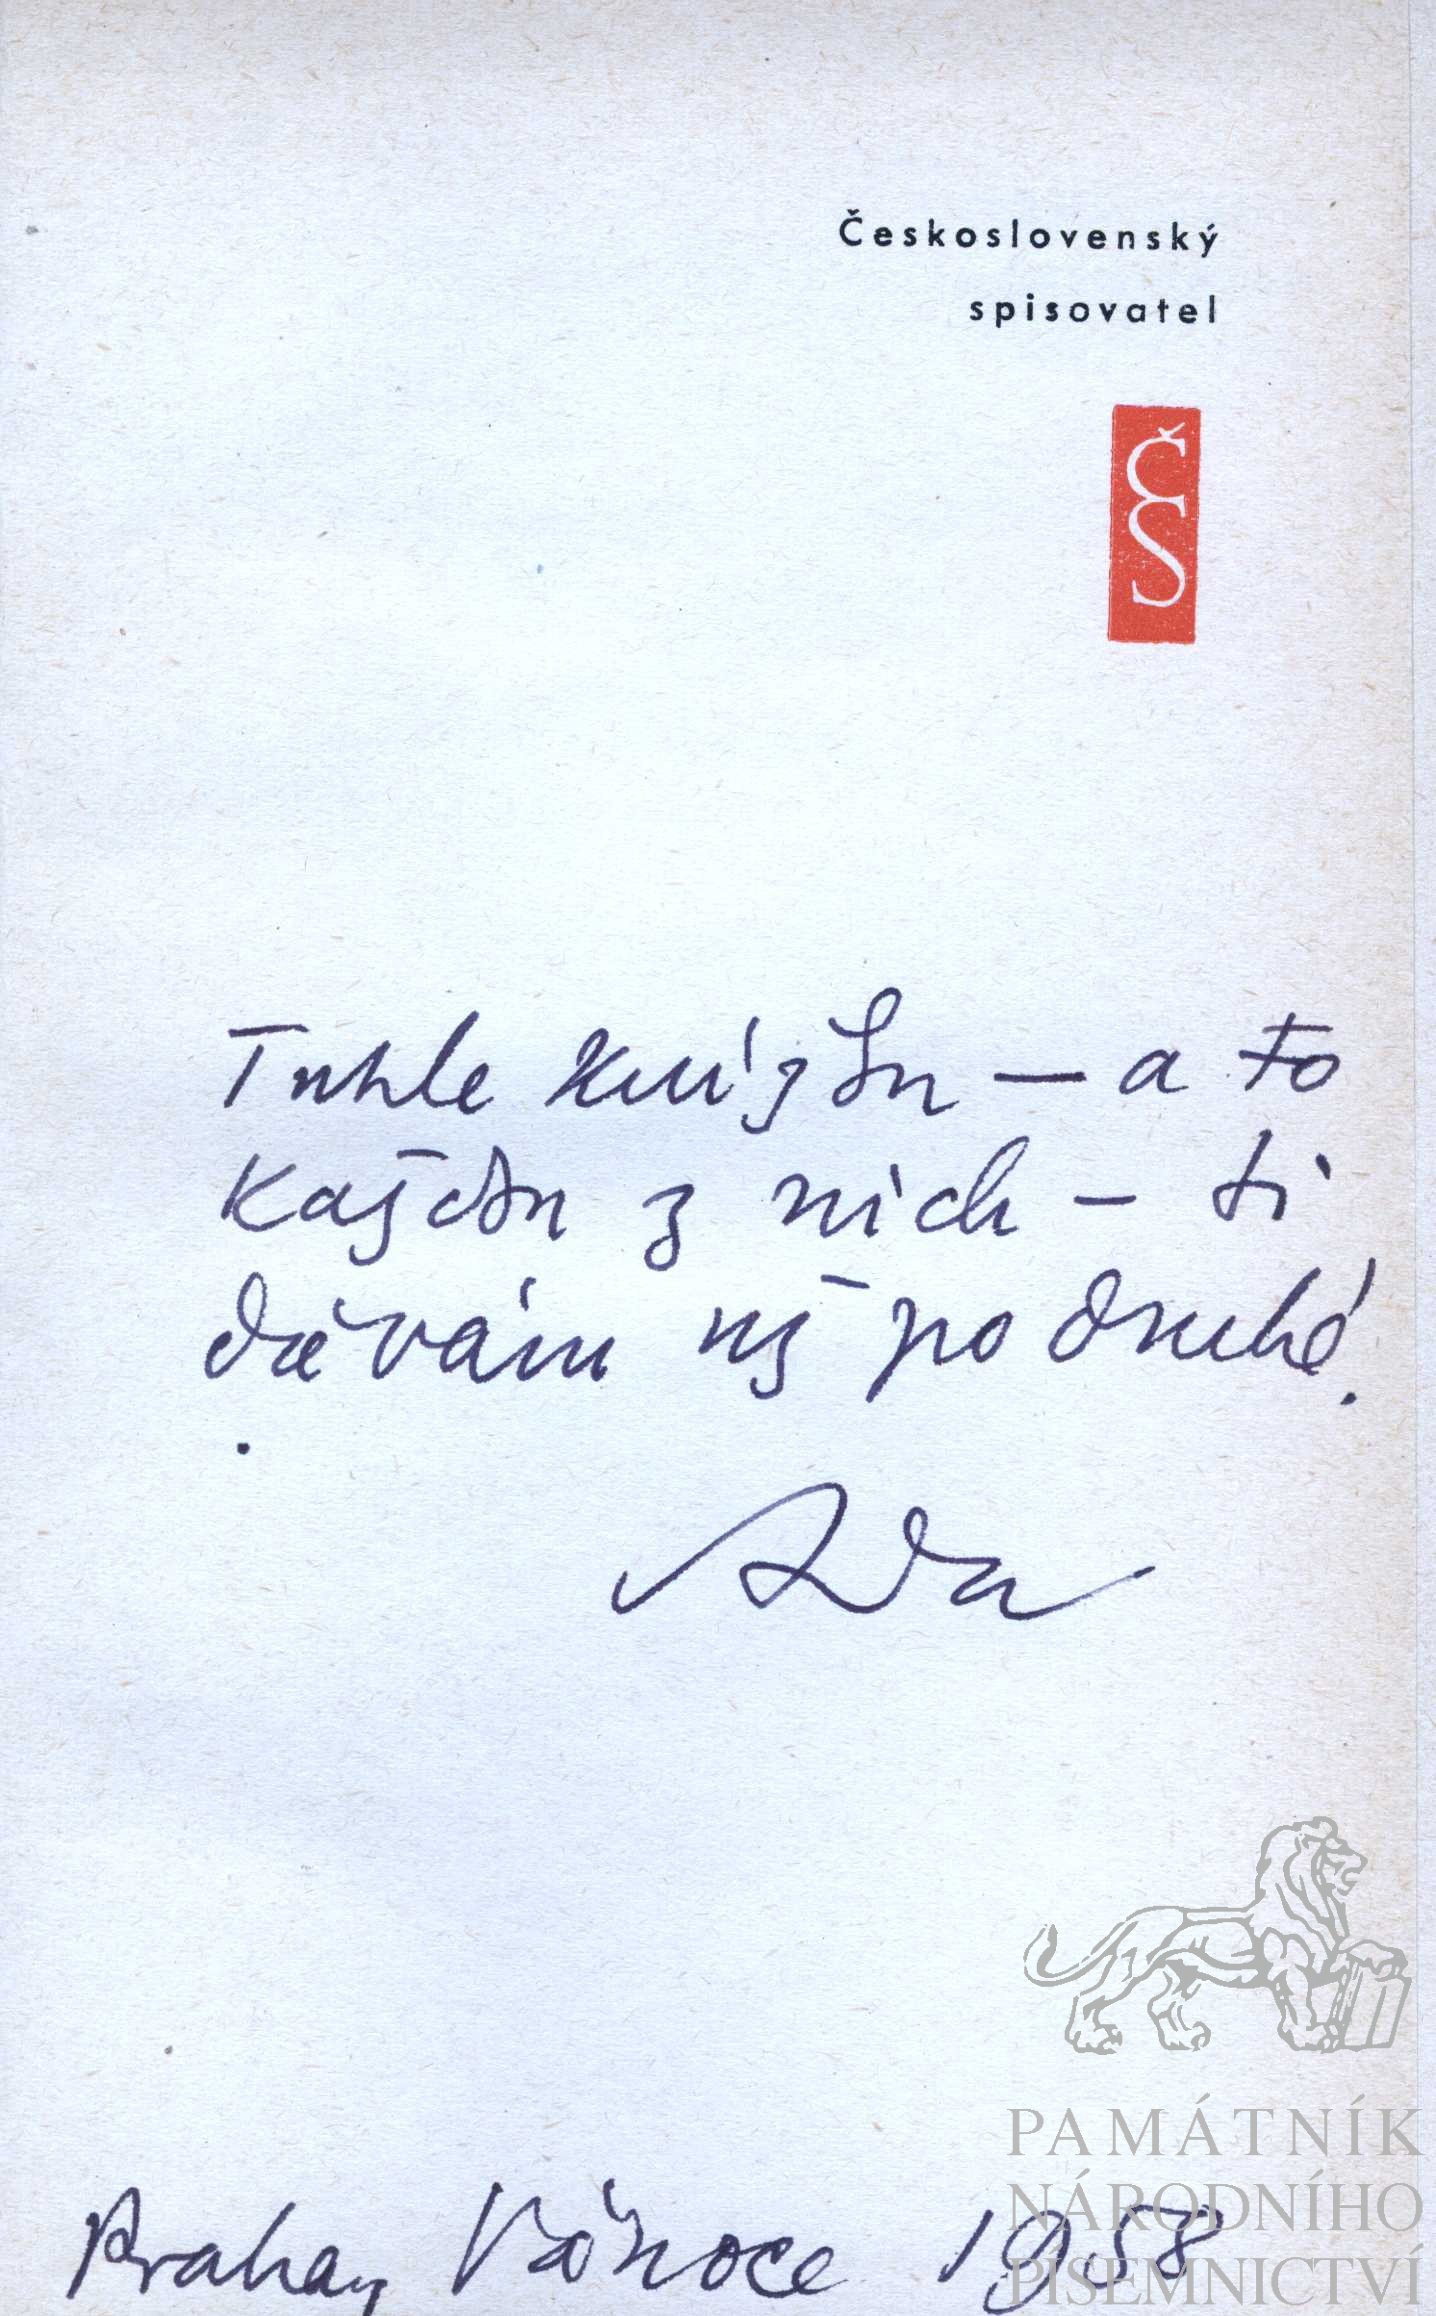 Československý
spisovatel
ČS
Tuhle knížku – a to
každou z nich – ti
dávám už podruhé.
Ada
Praha, Vánoce 1958
PAMÁTNÍK
NÁRODNÍHO
PÍSEMNICTVÍ